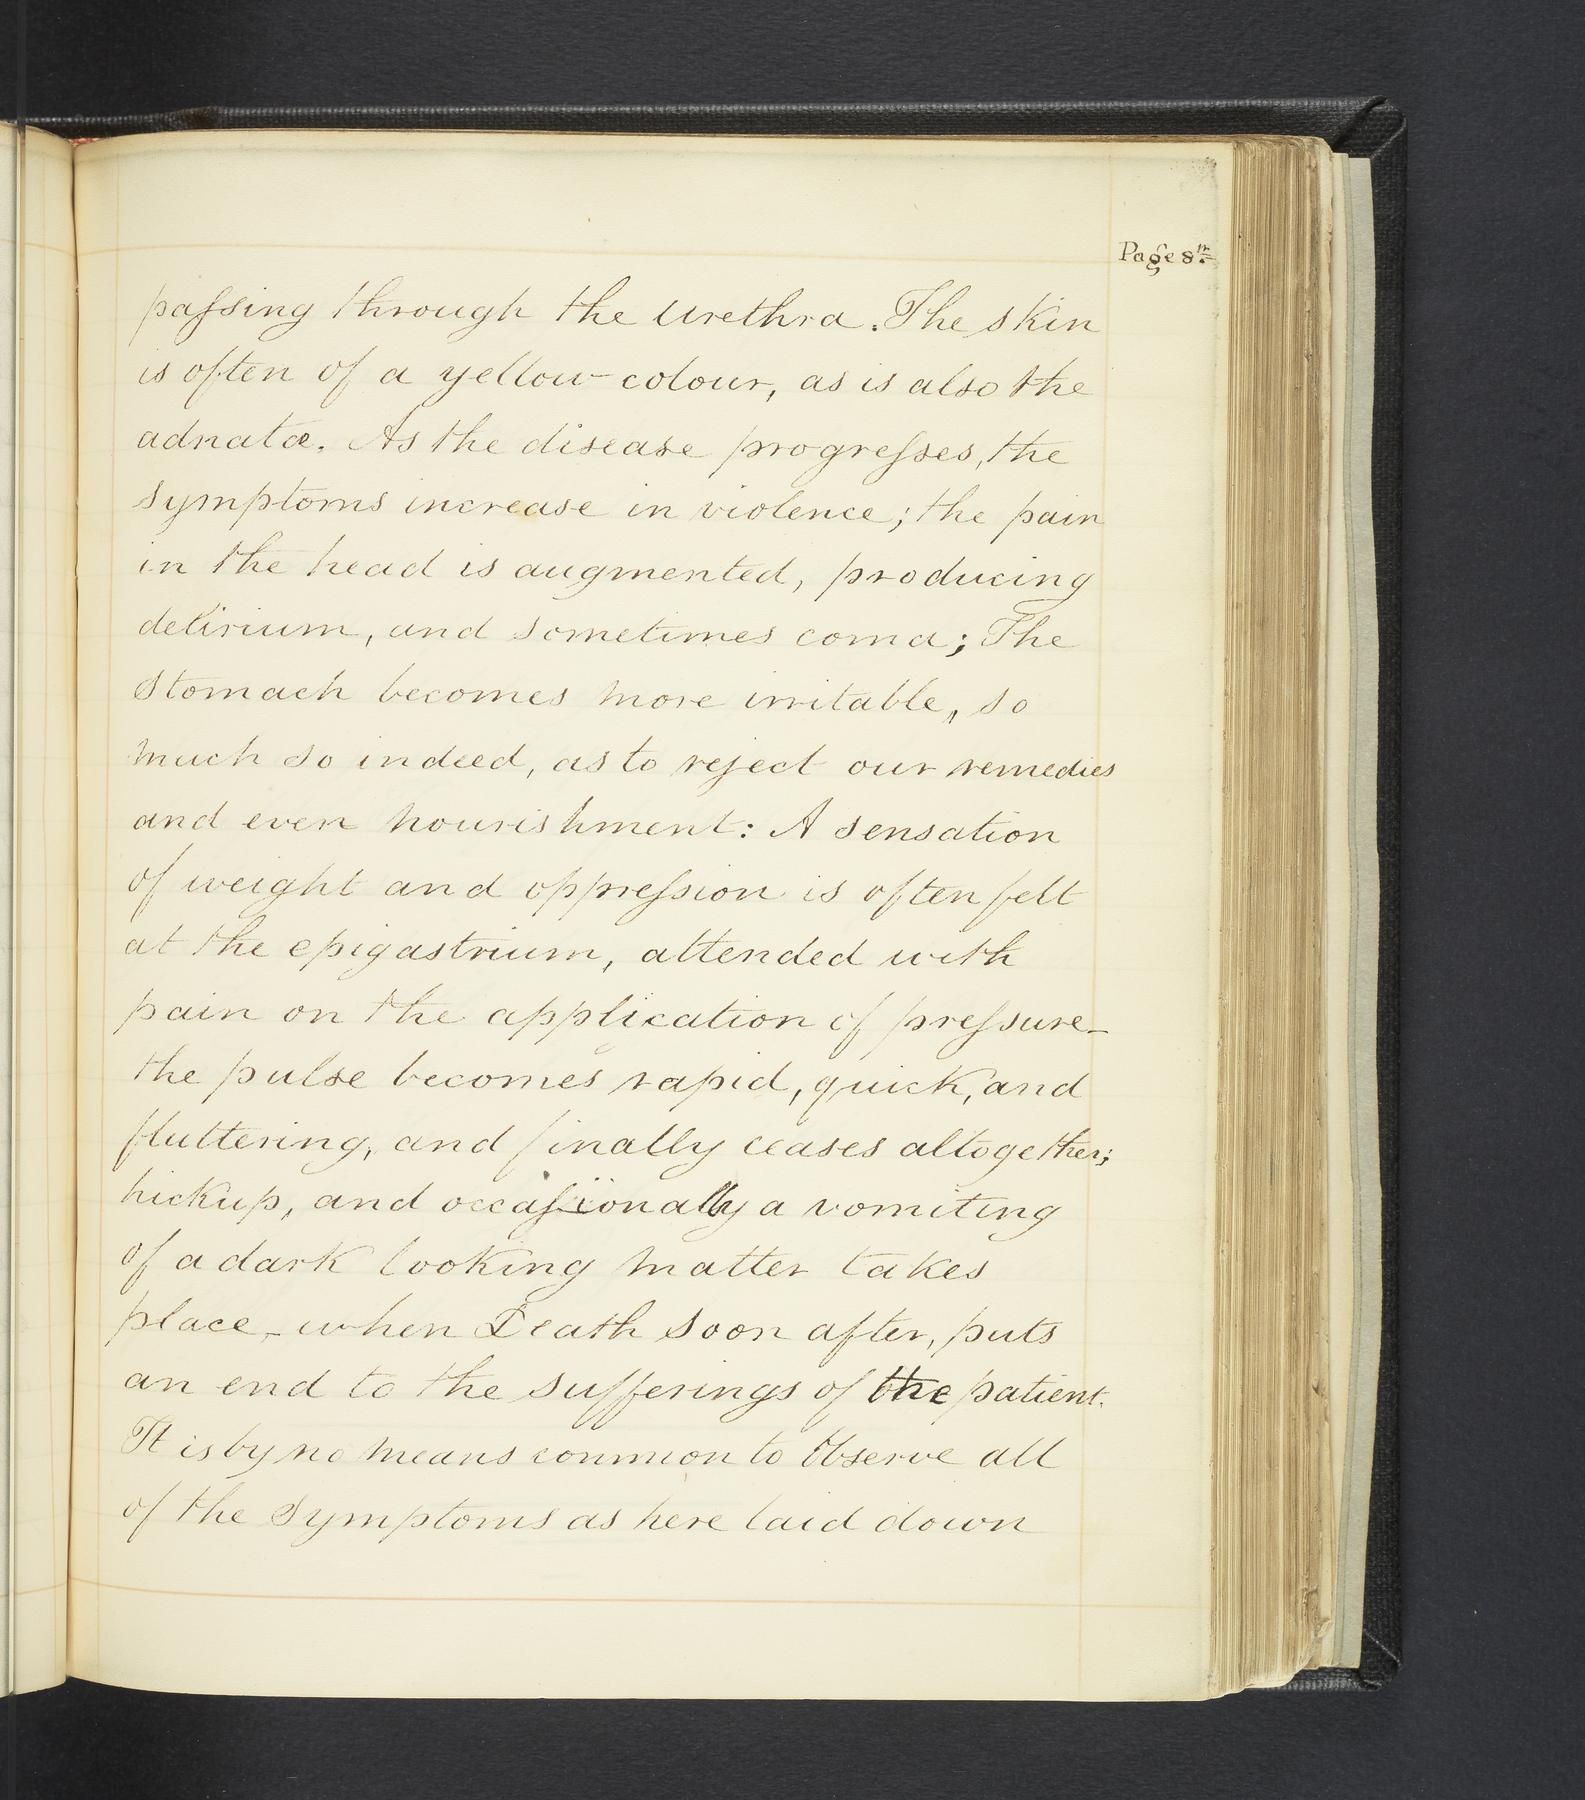 Page 8th
paſsing through the urethra. The skin
is often of a yellow colour, as is also the
adnatæ. As the disease progreſses, the
symptoms increase in violence; the pain
in the head is augmented, producing
delirium, and sometimes coma; The
stomach becomes more irritable, so
much so indeed, as to reject our remedies
and even nourishment: A sensation
of weight and oppreſsion is often felt
at the epigastrium, attended with
pain on the application of preſsure_
the pulse becomes rapid, quick, and
fluttering, and finally ceases altogether;
hickup, and occaſsionally a vomiting
of a dark looking matter takes
place_ when Death soon after, puts
an end to the sufferings of the patient.
It is by no means common to observe all
of the symptoms as here laid down